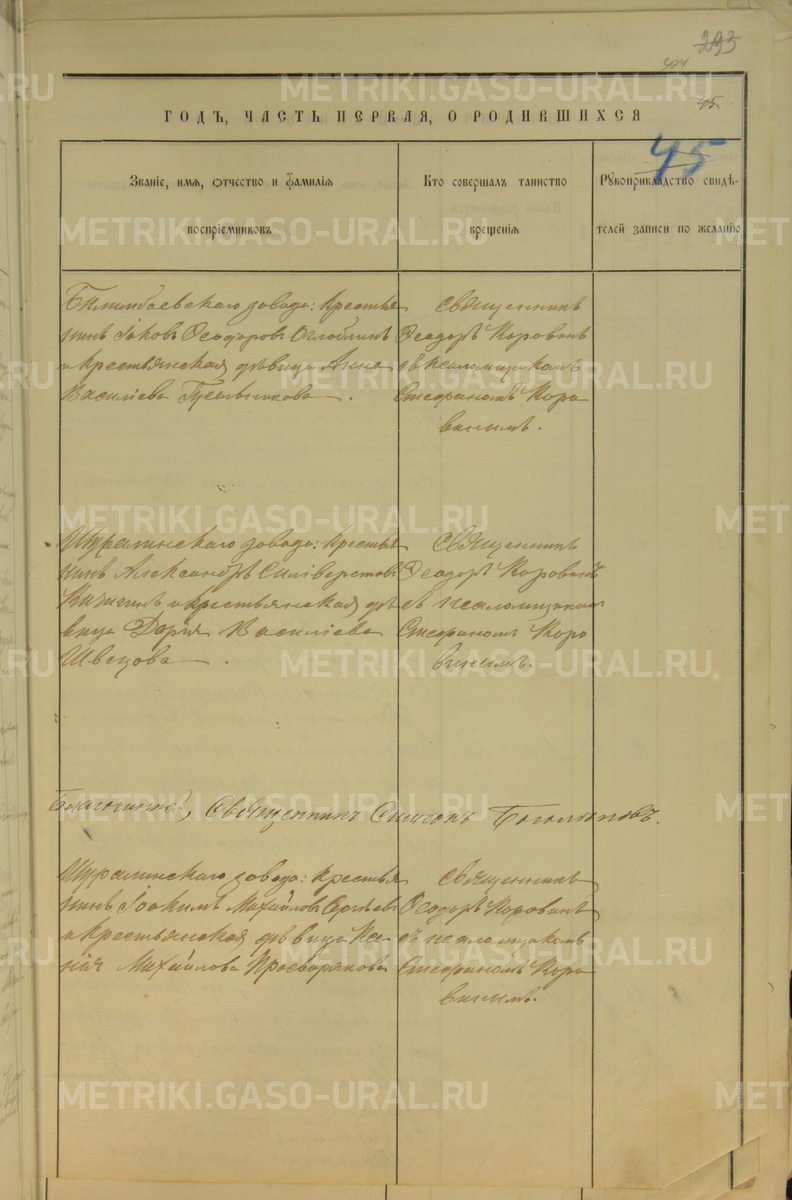 293
45
ГОДЪ, ЧАСТЬ ПЕРВАЯ, О РОДИВШИХСЯ
45
Званіе, имя, отчество и фамилія
воспріемниковъ
Кто совершалъ таинство
крещенія
Рукоприкладство свидѣ-
телей записи по желанію
Билимбаевскаго завода: крестья
нинъ Іаковъ Ѳеодоровъ Оглоблинъ
и крестьянская дѣвица Анна
Василіева Гусельникова.
Священникъ
Ѳеодоръ Коровинъ
съ псаломщикомъ
Стефаномъ Коро
винымъ.
Шуралинскаго завода: крестья
нинъ Александръ Силіверстовъ
Кичигинъ и крестьянская дѣ
вица Дарія Василіева
Швецова.
Священникъ
Ѳеодоръ Коровинъ
съ псаломщикомъ
Стефаномъ Коро
винымъ.
Благочинный, Священникъ Симеонъ Боголюбовъ.
Шуралинскаго завода: крестья
нинъ Іоакимъ Михайловъ Сергѣевъ
и крестьянская дѣвица
Михайлова Просвирякова
Священникъ
Ѳеодоръ Коровинъ
съ псаломщикомъ
Стефаномъ Коро
винымъ.
METRIKI.GASO-URAL.RU